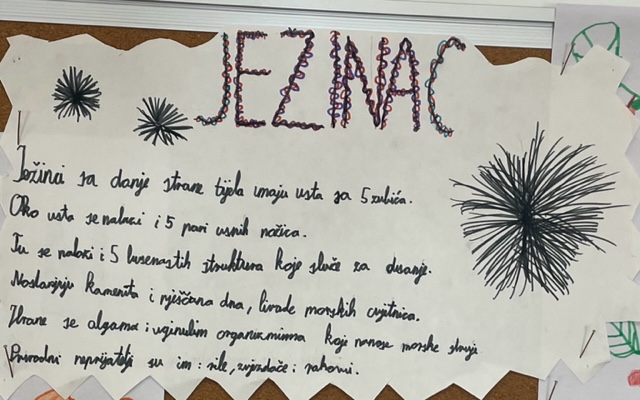 JEŽINAC
Ježinci sa donje strane tijela imaju usta sa 5 zubića.
Oko usta se nalazi i 5 pari usnih nožica.
Tu se nalazi i 5 busenastih struktura koje služe za disanje.
Nastanjuju kamenita i pješčana dna, livade morskih cvjetnica.
Hrane se algama i uginulim organizmima koji nanose morske struje
Prirodni neprijatelji su im: ribe, zvjezdače i rakovi.